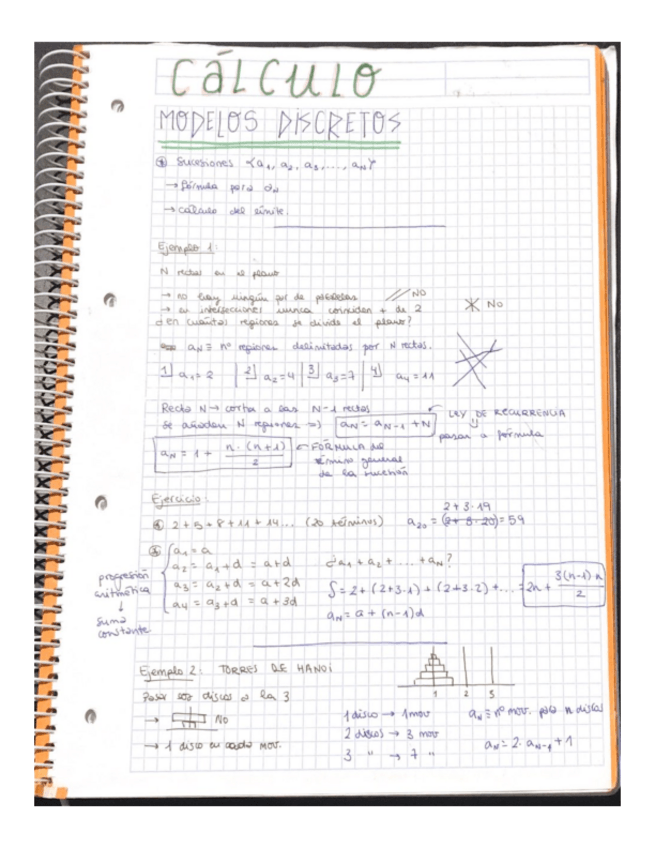 CÁLCULO
MODELOS DISCRETOS
① Sucesiones {a₁, a₂, a₃, ..., aₙ}
→ fórmula para aₙ
→ cálculo del límite.
Ejemplo 1:
N rectas en el plano
→ no hay ningún par de paralelas NO
→ en intersecciones nunca coinciden + de 2 NO
¿en cuántas regiones se divide el plano?
aₙ ≡ nº regiones delimitadas por N rectas.
1| a₁=2 2| a₂=4 3| a₃=7 4| a₄=11
Recta N → corta a las N-1 rectas
Se añaden N regiones => aₙ = aₙ₋₁ + N ← LEY DE RECURRENCIA
pasar a fórmula
aₙ = 1 + n·(n+1)/2 ← FÓRMULA del
término general
de la sucesión
Ejercicio:
2+3·19
2+5+8+11+14... (20 términos) a₂₀ = (2+3·20) = 59
a₁ = a
a₂ = a₁+d = a+d
a₃ = a₂+d = a+2d
a₄ = a₃+d = a+3d
progresión
aritmética
↓
suma
constante
¿a₁+a₂+ ... +aₙ?
S = 2+(2+3·1)+(2+3·2)+... = 2n + 3(n-1)n/2
aₙ = a+(n-1)d
Ejemplo 2: TORRES DE HANOI
1 2 3
Pasar los discos a la 3
→ NO
→ 1 disco en cada mov.
1 disco → 1 mov
2 discos → 3 mov
3 " → 7 "
aₙ ≡ nº mov. para n discos
aₙ = 2·aₙ₋₁+1